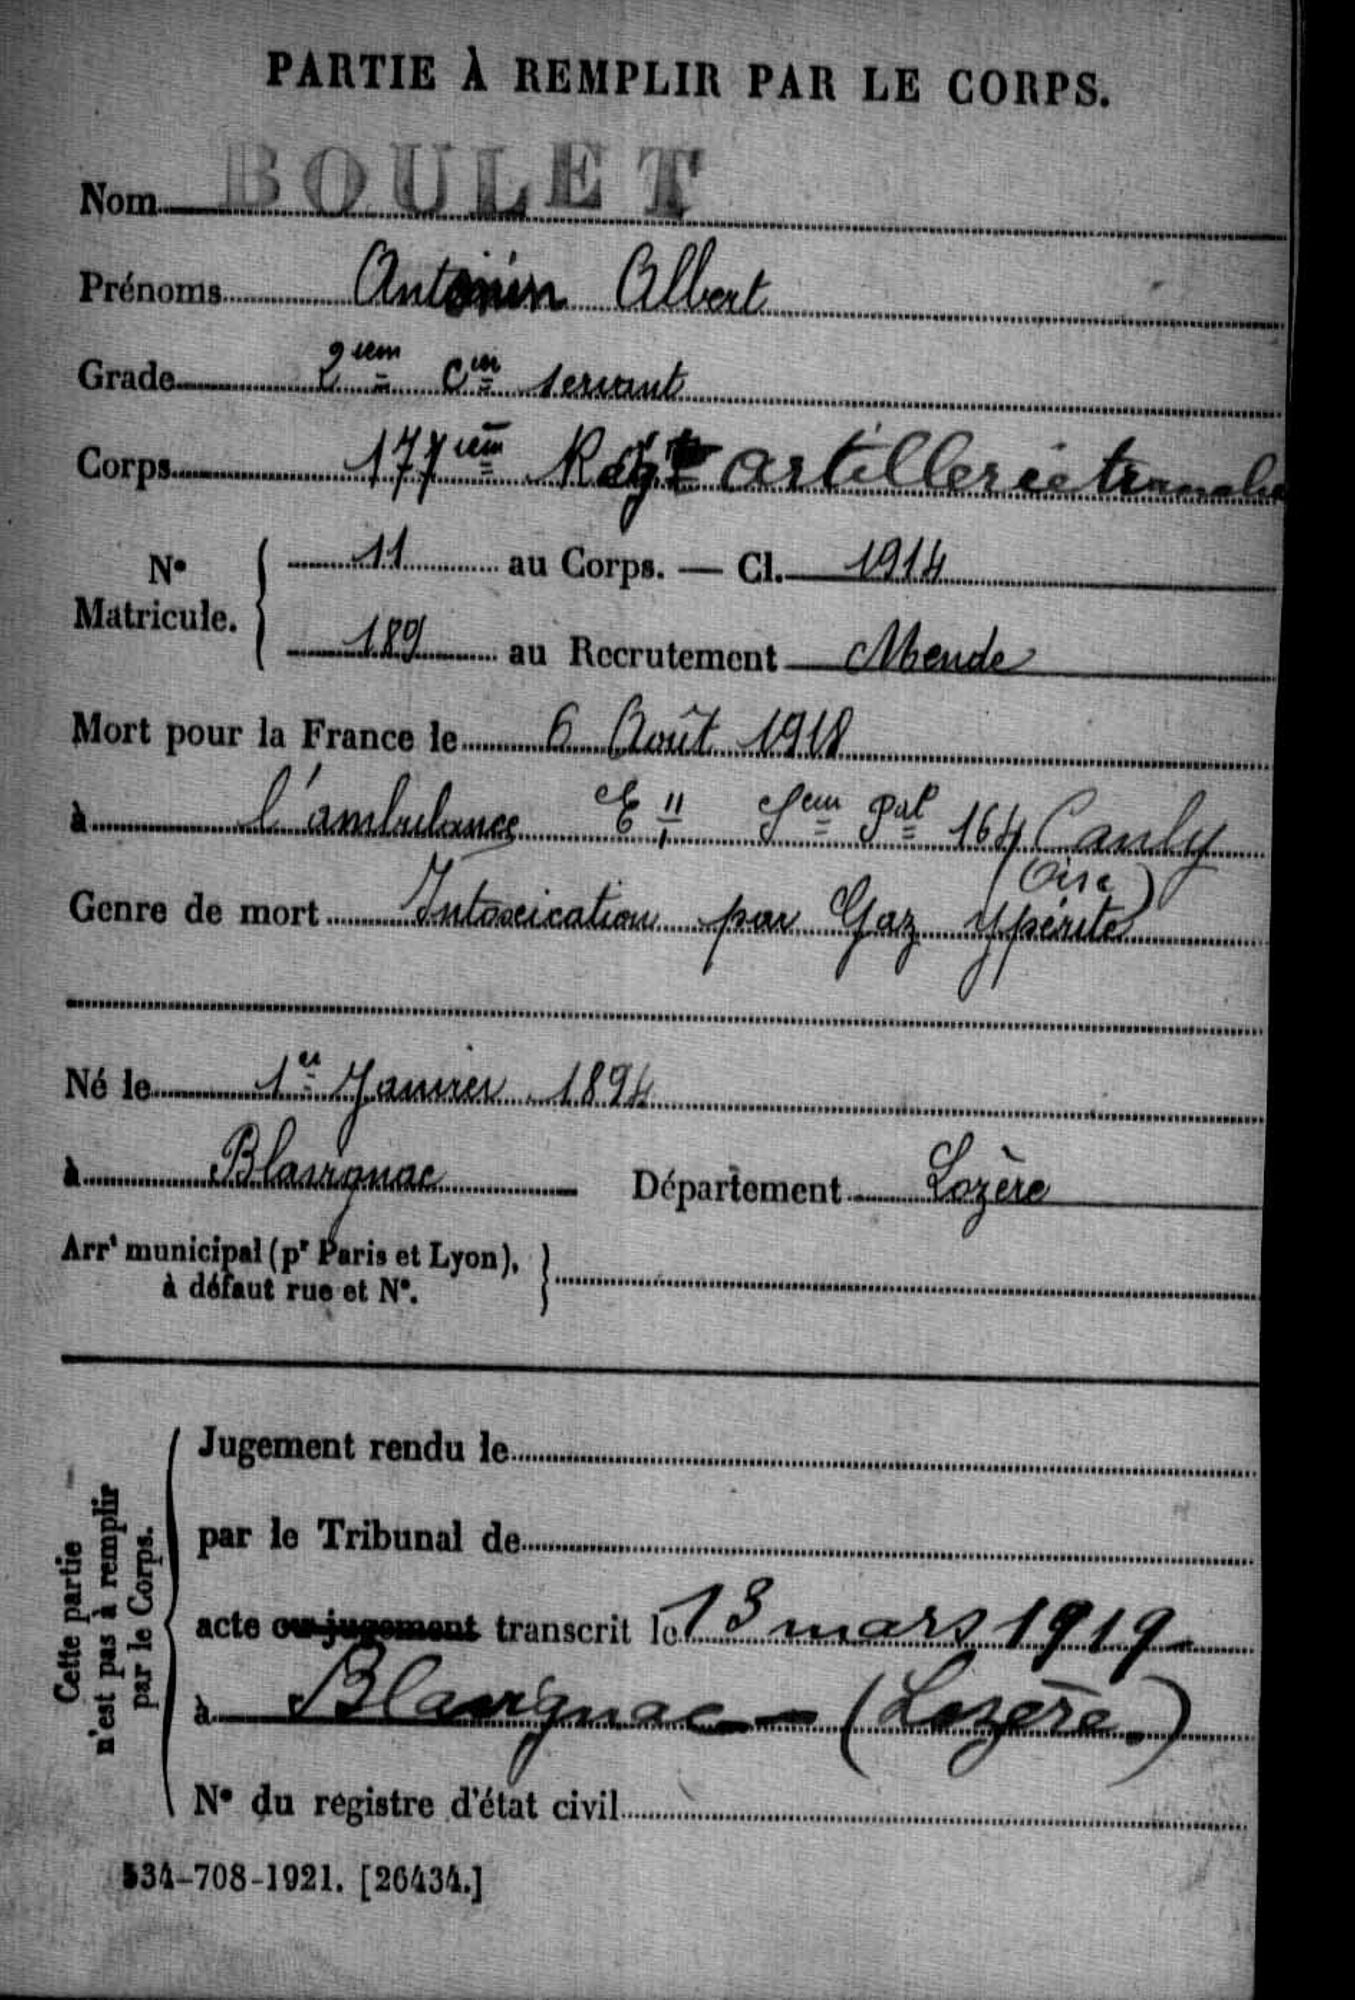 PARTIE À REMPLIR PAR LE CORPS.
Nom BOULET
Prénoms Antonin Albert
Grade 2iem Cer servant
Corps 177iem Régt artillerie tranchée
N° Matricule. { 11 au Corps. — Cl. 1914
189 au Recrutement Mende
Mort pour la France le 6 Août 1918
à l'ambulance E II Seur Pal 164 Canly
(Oise)
Genre de mort Intoxication par Gaz ypérite
Né le 1er Janvier 1894
à Blavignac Département Lozère
Arrt municipal (pr Paris et Lyon), }
à défaut rue et N°.
Cette partie
n'est pas à remplir
par le Corps.
Jugement rendu le
par le Tribunal de
acte ou jugement transcrit le 13 mars 1919
à Blavignac — (Lozère.)
N° du registre d'état civil
534-708-1921. [26434.]